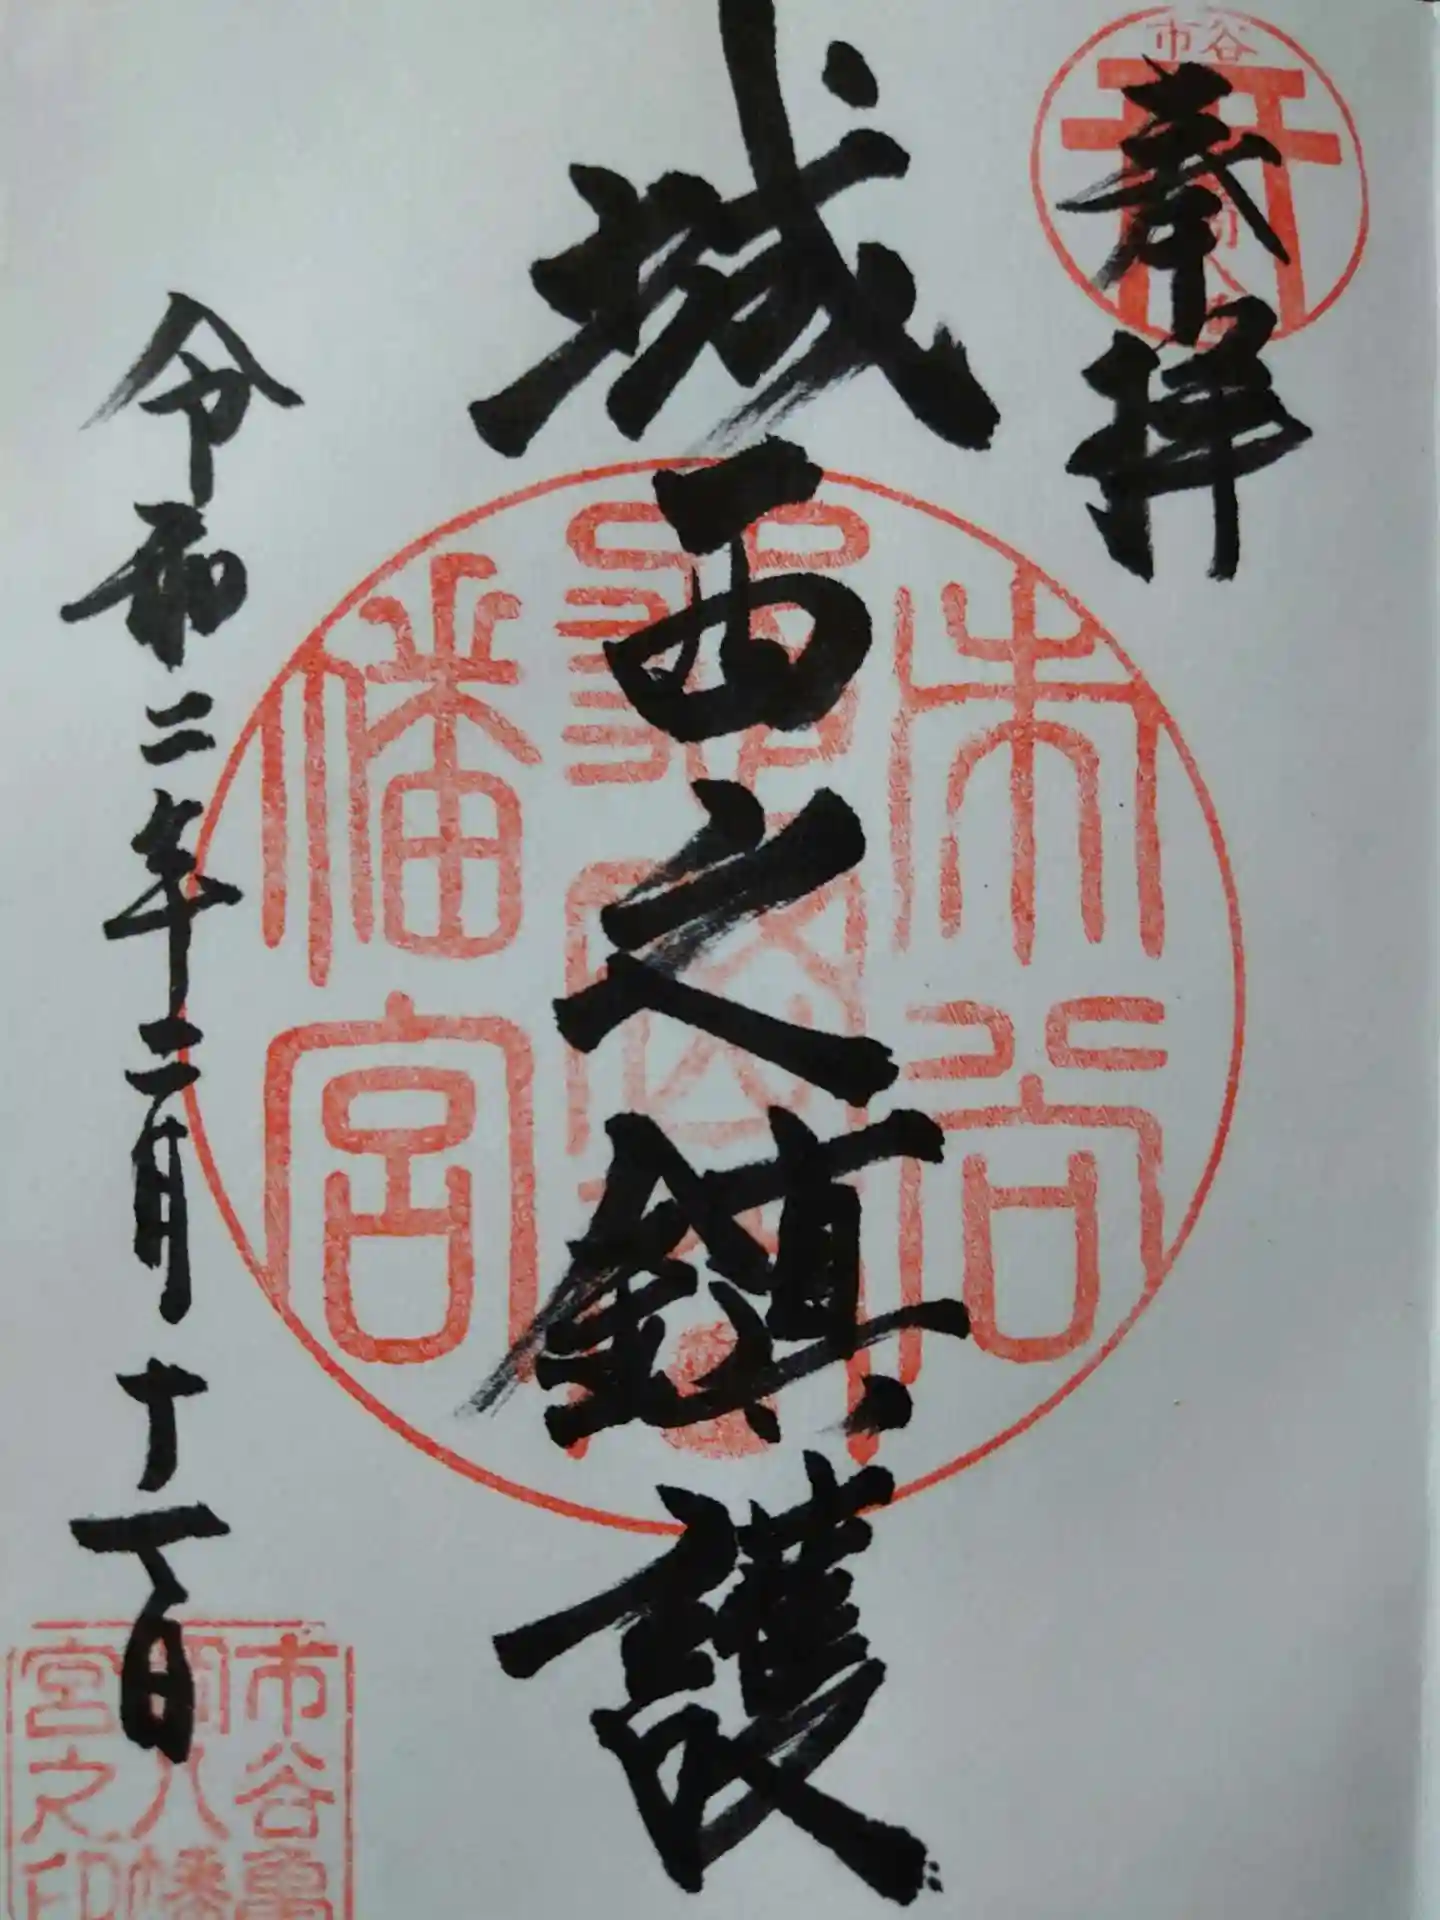 市谷
奉拝
城西之鎮護
市谷亀岡八幡宮
令和二年二月十一日
市谷亀
岡八幡
宮之印